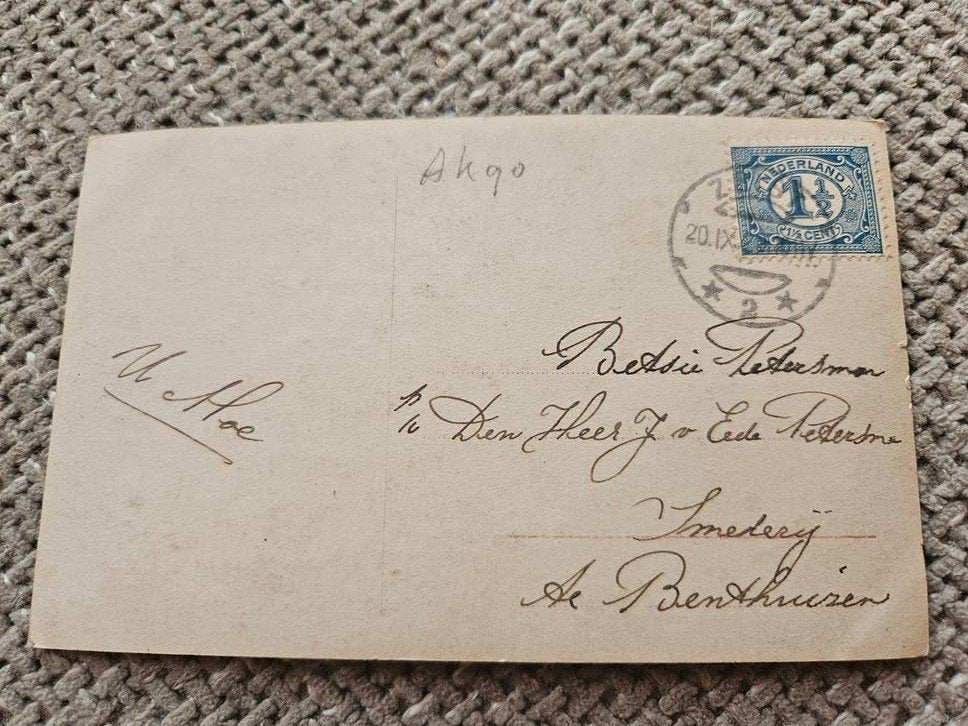 Ak90
NEDERLAND
1 1/2
1 1/2 CENT
20.IX
2
Betsie Petersman
p/a Den Heer J v Eede Petersma
U Moe
Smederij
Ae Benthuizen